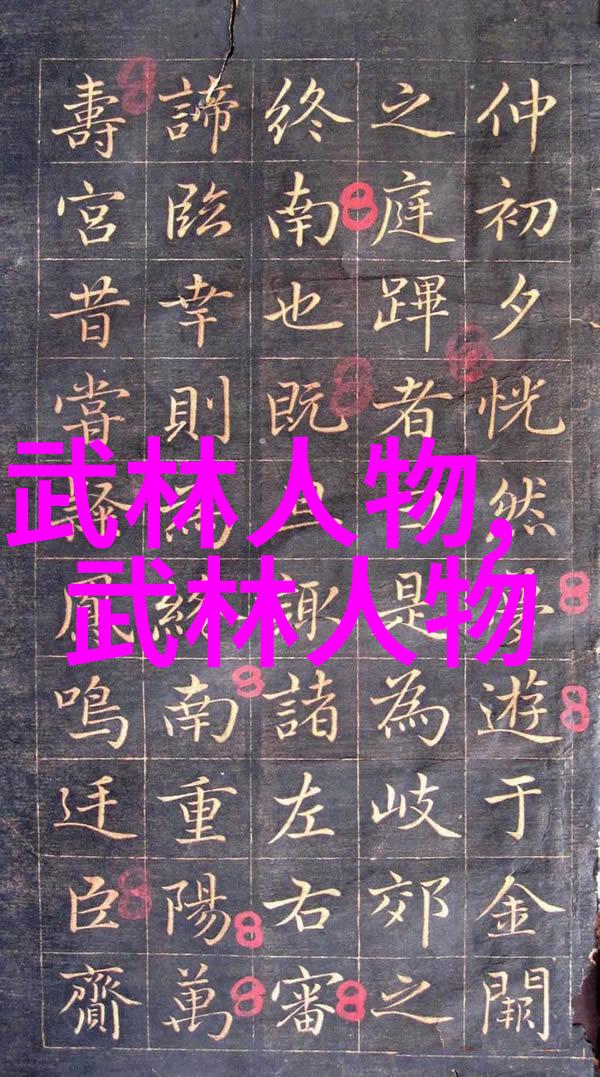 武林人物,
武林人物
仲初夕恍然遊于金闕
之庭蹕者曰是為岐郊之
終南也既且諏諸左右審
諦臨幸則為終南重陽萬
壽宮昔嘗鳳鳴迋臣齎